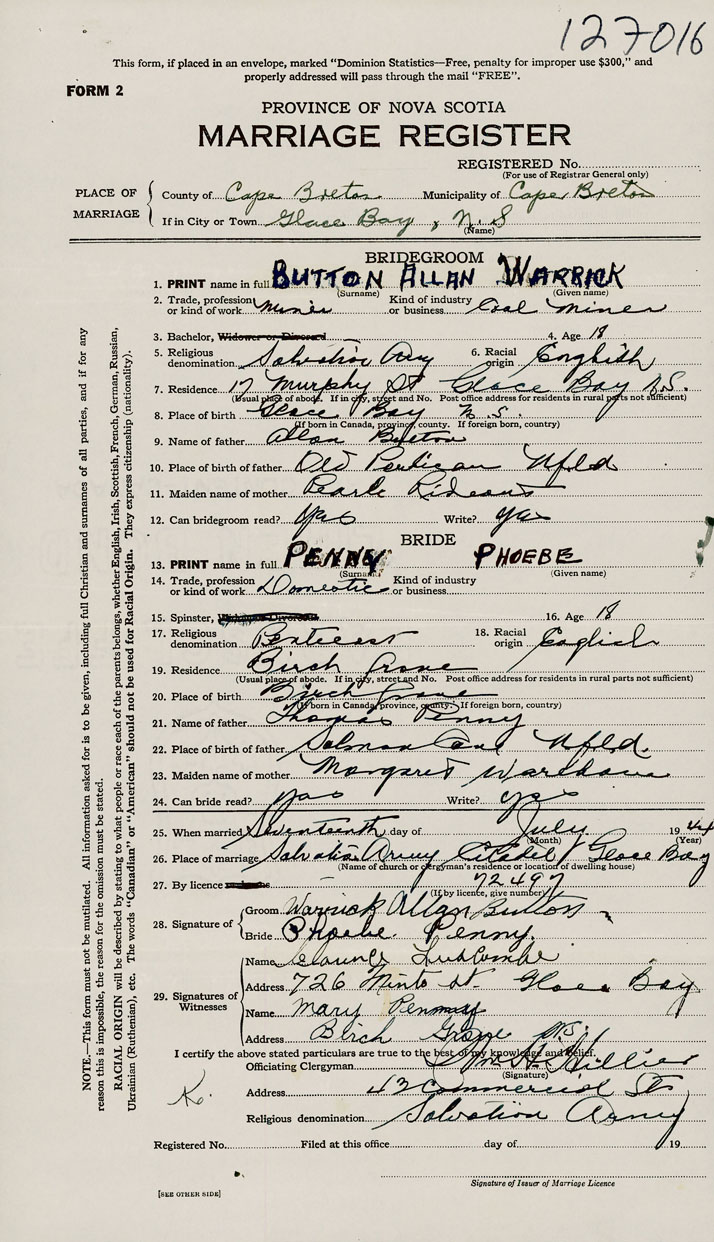 127016
This form, if placed in an envelope, marked "Dominion Statistics—Free, penalty for improper use $300," and
properly addressed will pass through the mail "FREE".
FORM 2
PROVINCE OF NOVA SCOTIA
MARRIAGE REGISTER
REGISTERED No.
(For use of Registrar General only)
PLACE OF MARRIAGE
County of Cape Breton Municipality of Cape Breton
If in City or Town Glace Bay, N.S
(Name)
BRIDEGROOM
1. PRINT name in full BUTTON ALLAN WARRICK
(Surname) (Given name)
2. Trade, profession or kind of work Miner Kind of industry or business Coal Miner
3. Bachelor, Widower or Divorced 4. Age 18
5. Religious denomination Salvation Army 6. Racial origin English
7. Residence 17 Murphy St Glace Bay N.S.
(Usual place of abode. If in city, street and No. Post office address for residents in rural parts not sufficient)
8. Place of birth Glace Bay N.S.
(If born in Canada, province, county. If foreign born, country)
9. Name of father Allan Button
10. Place of birth of father Old Perlican Nfld
11. Maiden name of mother Pearle Rideout
12. Can bridegroom read? yes Write? yes
BRIDE
13. PRINT name in full PENNY PHOEBE
(Surname) (Given name)
14. Trade, profession or kind of work Domestic Kind of industry or business
15. Spinster, 16. Age 18
17. Religious denomination Pentecost 18. Racial origin English
19. Residence Birch Grove
(Usual place of abode. If in city, street and No. Post office address for residents in rural parts not sufficient)
20. Place of birth Birch Grove
(If born in Canada, province, county. If foreign born, country)
21. Name of father Thomas Penny
22. Place of birth of father Salmon Cove Nfld.
23. Maiden name of mother Margaret Wareham
24. Can bride read? yes Write? yes
25. When married Seventeenth day of July 1944
(Month) (Year)
26. Place of marriage Salvation Army Citadel Glace Bay
(Name of church or clergyman's residence or location of dwelling house)
27. By licence 72497
(If by licence, give number)
28. Signature of Groom Warrick Allan Button
Bride Phoebe Penny.
29. Signatures of Witnesses
Name Luscombe
Address 726 Minto St. Glace Bay
Name Mary Penny
Address Birch Grove N.S.
I certify the above stated particulars are true to the best of my knowledge and belief.
Officiating Clergyman Wm H. Hillier
(Signature)
Address 43 Commercial St.
K.
Religious denomination Salvation Army
Registered No. Filed at this office day of 19
Signature of Issuer of Marriage Licence
[SEE OTHER SIDE]
NOTE.—This form must not be mutilated. All information asked for is to be given, including full Christian and surnames of all parties, and if for any
reason this is impossible, the reason for the omission must be stated.
RACIAL ORIGIN will be described by stating to what people or race each of the parents belongs, whether English, Irish, Scottish, French, German, Russian,
Ukrainian (Ruthenian), etc. The words "Canadian" or "American" should not be used for Racial Origin. They express citizenship (nationality).